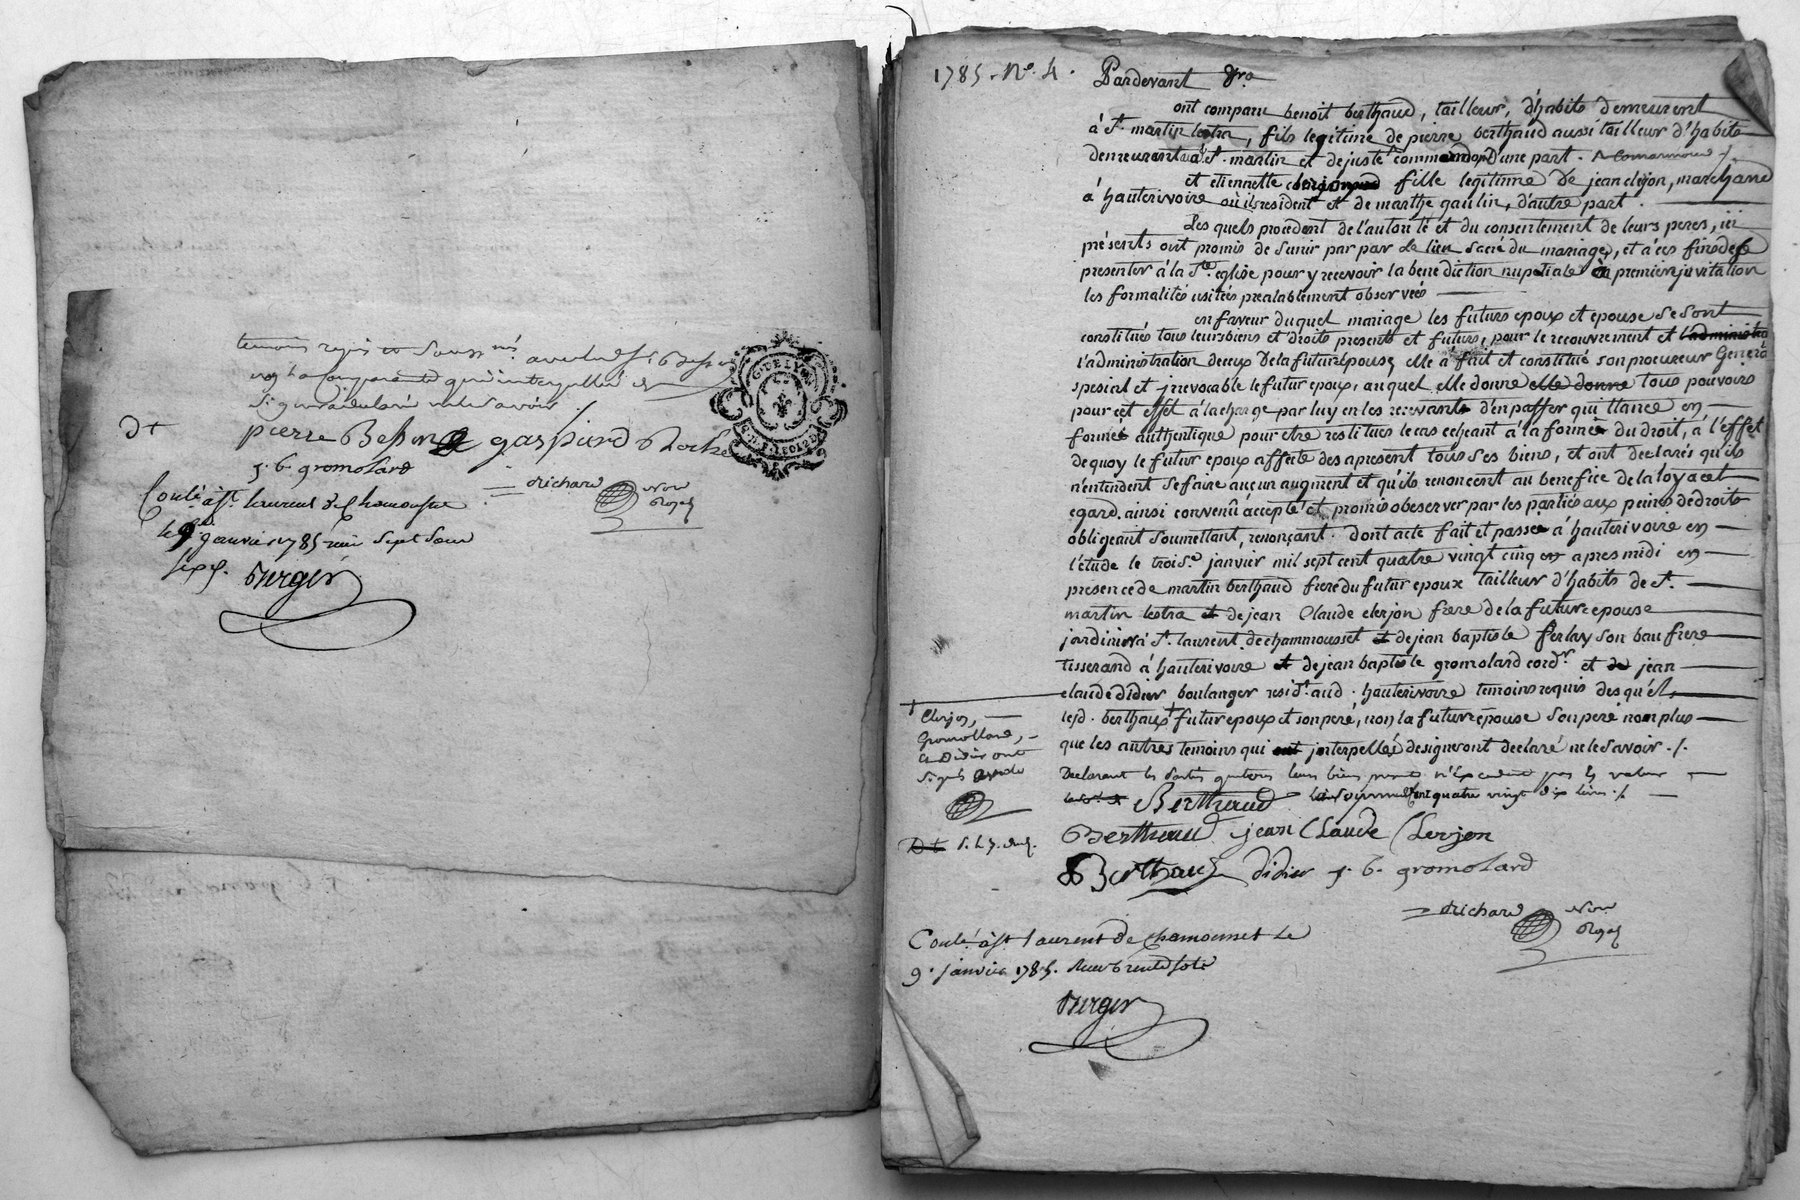 temoins requis et Soussnés avec led. Sr Besson
non la Comparante qui interpellée de
Signer a declaré ne le Savoir ./.
Dt
pierre Besson gaspard Roche
j. b. gromolard
richard Nore Royal
G. DE LYON
Conlé. à St. laurent de Chamousset
le 9. janvier 1785 reçu Sept Sous
Six d.
Berger
1785. No. 4.
Pardevant &ra
ont comparu benoit berthaud, tailleur, d'habits demeurent
à St. martin lestra, fils legitime de pierre berthaud aussi tailleur d'habits
demeurent aud. St. martin et de juste D'une part.
et etiennette clerjon fille legitime de jean clerjon, marchand
à hauterivoire où ils resident et de marthe gaulin, d'autre part.
Les quels procedent de l'autorité et du consentement de leurs peres, ici
présents ont promis de s'unir par par le lien sacré du mariage, et à ces fins de se
presenter à la Ste. eglise pour y recevoir la benediction nuptiale à la premier invitation
les formalités usitées prealablement observées
en faveur duquel mariage les futurs epoux et epouse se sont
constitués tous leurs biens et droits presents et futurs, pour le recouvrement et l'administra
l'administration de ceux de la future epouse, elle a fait et constitué son procureur General
spesial et irrevocable le futur epoux, auquel elle donne elle donne tous pouvoirs
pour cet effet à la charge par luy en les recevants d'en passer quittance en
forme authentique pour etre restitués le cas echeant à la forme du droit, à l'effet
de quoy le futur epoux affecte des apresent tous ses biens, et ont declarés qu'ils
n'entendent se faire aucun augment et qu'ils renoncent au benefice de la loy a cet
egard. ainsi convenû accepté et promis obeserver par les parties aux peines de droits
obligeant soumettant, renonçant. dont acte fait et passé à hauterivoire en
l'étude le trois.e janvier mil sept cent quatre vingt cinq en apres midi en
presence de martin berthaud frere du futur epoux tailleur d'habits de St.
martin lestra et de jean Claude clerjon frere de la future epouse
jardinier à St. laurent de chammousset et de jean baptiste ferlay son bau frere
tisserand à hauterivoire et de jean baptiste gromolard cordr. et de jean
claude didier boulanger residt. aud. hauterivoire temoins requis desquels,
led. berthaux + futur epoux et son peré, non la future epouse son peré non plus
que les autres temoins qui ont interpellés de signer ont declaré ne le savoir ./.
+ Clerjon,
Gromollard,
et Didier ont
Signés
Declarent les parties que tous leurs biens presents n'Excedent pas la valeur
Berthaud la somme cent quatre vingt dix livres ./.
Berthaud jean Claude Clerjon
Berthaud didier j. b. gromolard
richard Nore Royal
Conlé. à St. laurent de Chamousset le
9. janvier 1785.
Berger